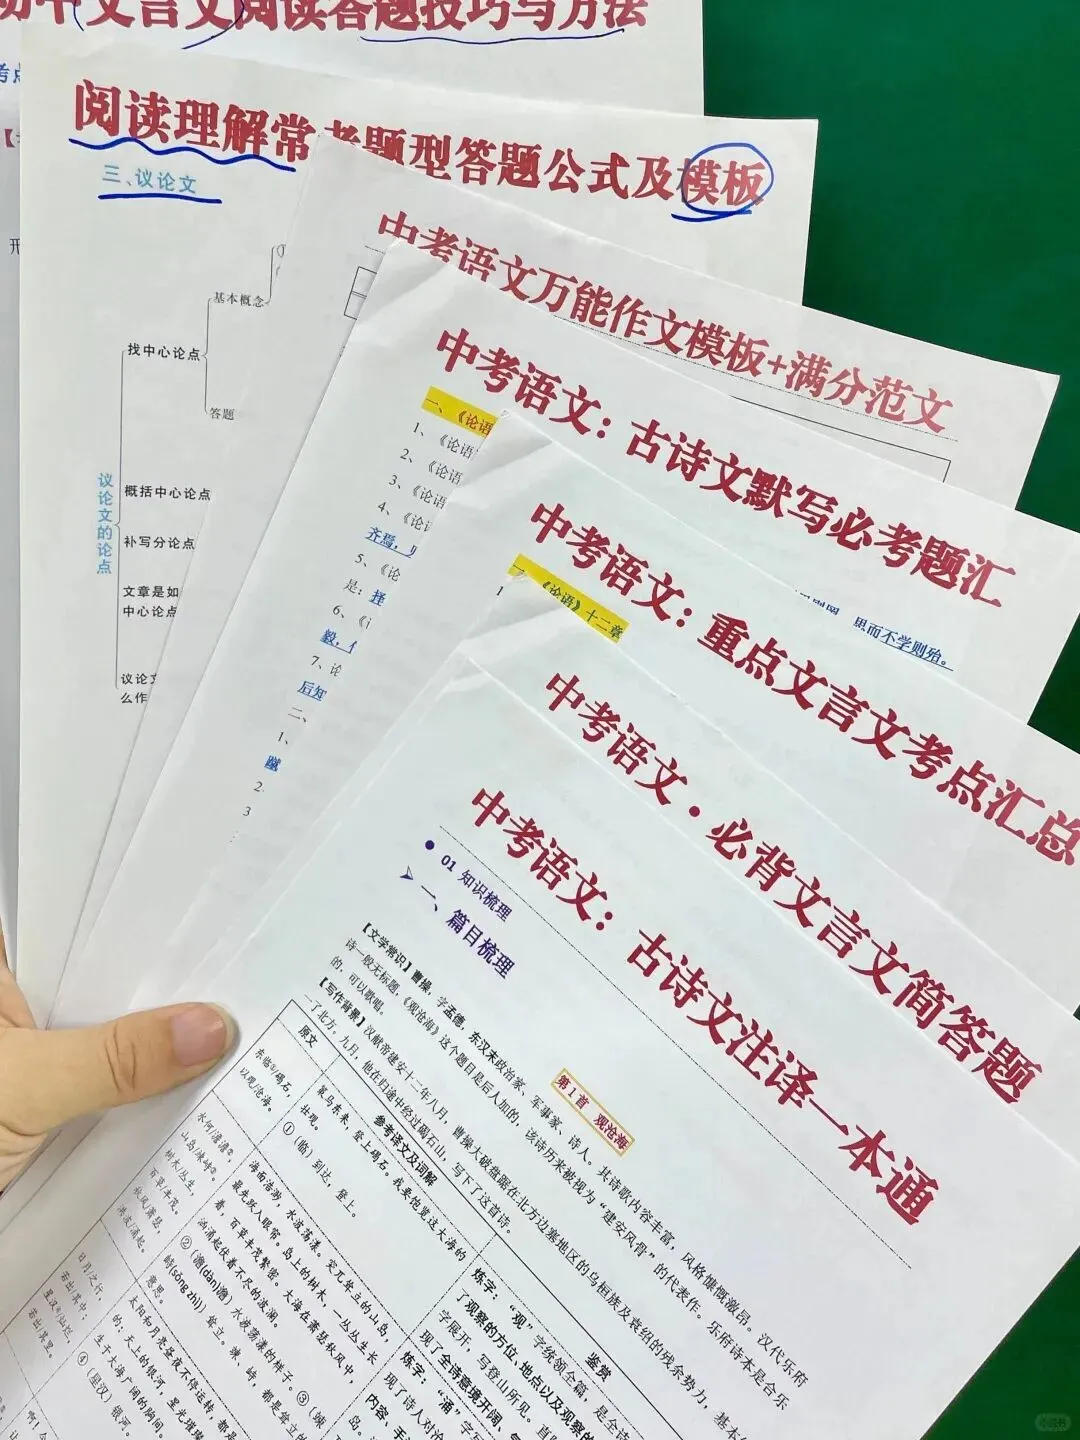 初中文言文阅读答题技巧与方法
考点
阅读理解常考题型答题公式及模板
三、议论文
基本概念
找中心论点
答题
议论文的论点
概括中心论点
补写分论点
文章是如
中心论点
议论文
么作
中考语文万能作文模板+满分范文
中考语文：古诗文默写必考题汇
一、《论语
1、《论语
2、《论语
3、《论语
4、《论语
齐焉，
5、《论
是：择
6、
毅，
7、论
后知
二、
1、
2
3
思而不学则殆。
中考语文：重点文言文考点汇总
一、《论语》十二章
1
中考语文·必背文言文简答题
中考语文：古诗文注译一本通
01 知识梳理
一、篇目梳理
第1首 观沧海
【文学常识】曹操，字孟德，东汉末政治家、军事家、诗人。其诗歌内容丰富，风格慷慨激昂。汉代乐府
诗一般无标题，《观沧海》这个题目是后人加的，该诗历来被视为“建安风骨”的代表作。乐府诗本是合乐
的，可以歌唱。
【写作背景】汉献帝建安十二年八月，曹操大破盘踞在北方边塞地区的乌桓族及袁绍的残余势力，基本
了北方。九月，他在归途中经过碣石山，写下了这首诗。
原文
参考译文及词解
鉴赏
东临①/碣石，
以观/沧海。
策马东来，登上碣石。我要饱览这大海的
壮观。
①（临）到达，登上。
炼字：“观”字统领全篇，是全诗
了观察的方位、地点以及观察的
字展开，写登山所见。直
现了全诗意境开阔、
水何/澹澹②，
山岛/竦峙③。
树木/丛生，
百草/丰茂。
秋风/萧瑟，
洪波/涌起。
海面浩渺，水波荡漾。突兀耸立的山岛，
最先跃入眼帘。岛上的树木，一丛丛生长
着，百草丰茂繁密。大海在萧瑟秋风中，
汹涌起伏着不尽的波澜。
②（澹(dàn)澹）水波荡漾的样子。③（竦
峙(sǒng zhì)）耸立。竦、峙，都是耸立的
意思。
炼字：“涌”字
现了诗人对沧
岛。
内容、手
日月/之行，
若出/其中；
星汉④/灿烂，
若出/其里。
太阳和月亮昼夜不停运转，都
的；天上的银河，星光璀璨
生于大海广阔的胸间。
④（星汉）银河。